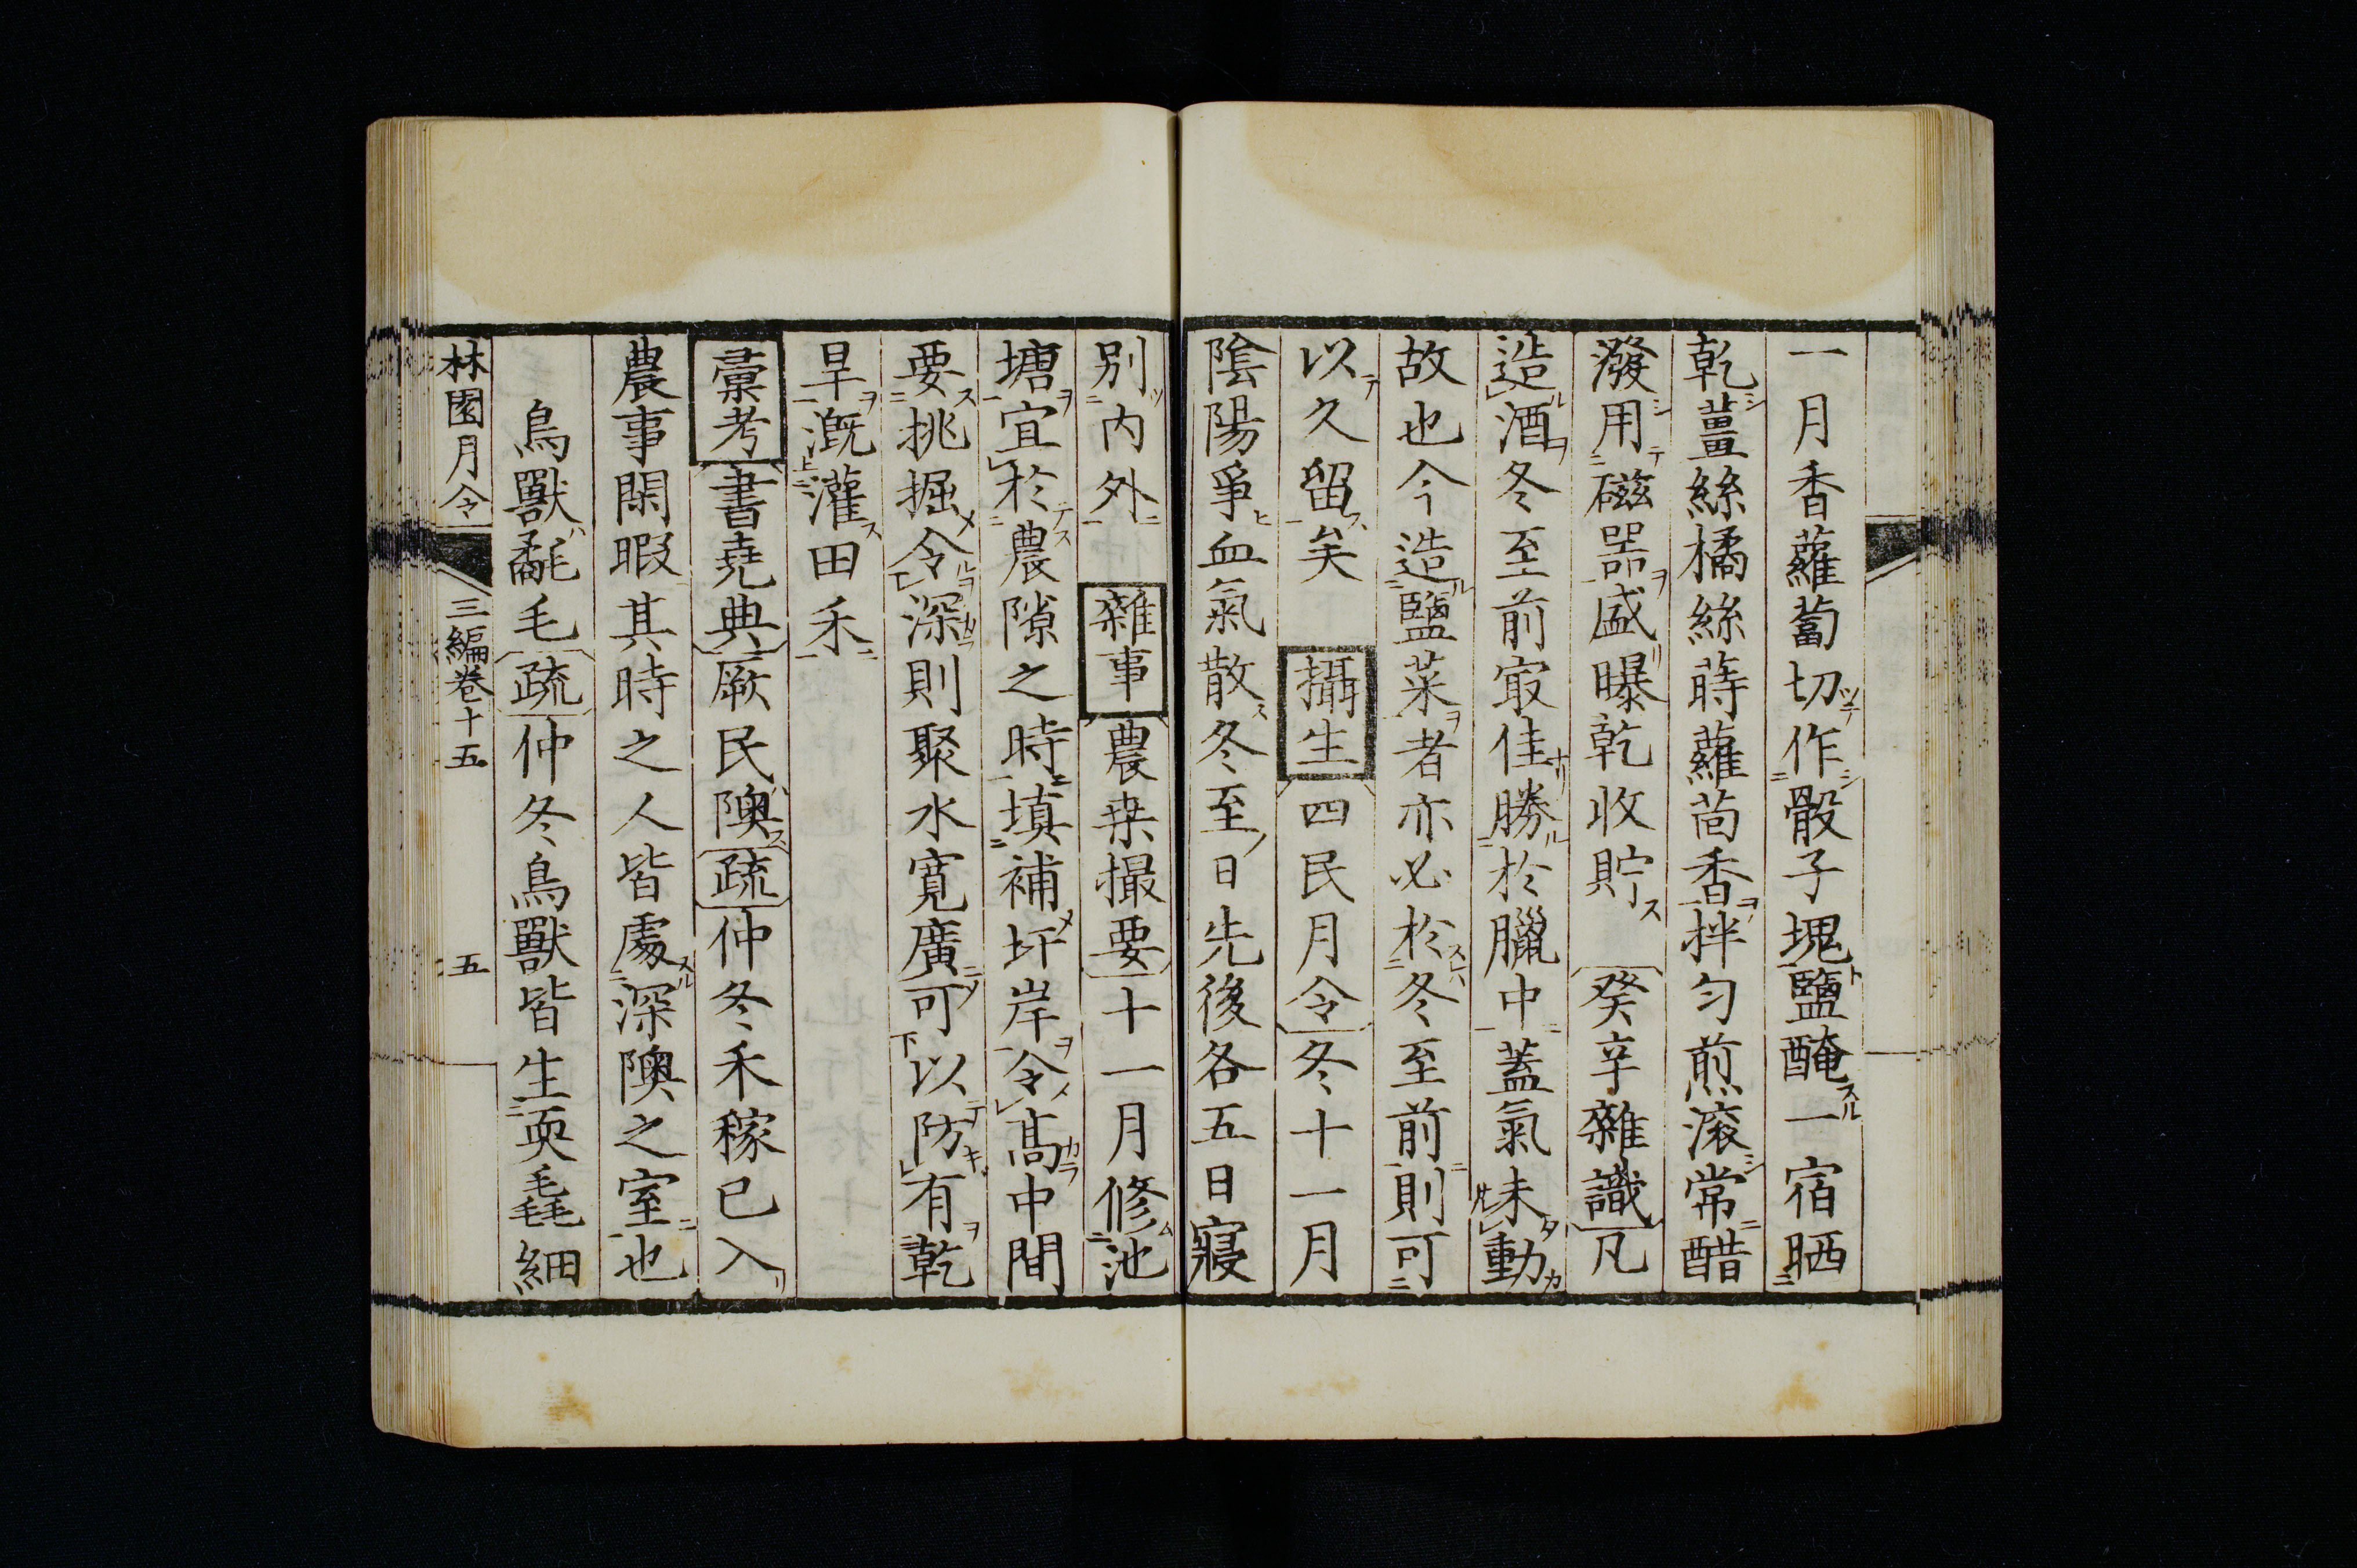 一月香蘿蔔切作骰子塊鹽醃一宿晒
乾薑絲橘絲蒔蘿茴香拌匀煎滚常醋
潑用磁器盛曝乾收貯 癸辛雜識凡
造酒冬至前㝡佳勝於臘中蓋氣味動
故也今造鹽菜者亦必於冬至前則可
以久留矣 攝生 四民月令冬十一月
陰陽爭血氣散冬至日先後各五日寢
别内外 雜事 農桒撮要十一月修池
塘宜於農隙之時填補圩岸令髙中間
要挑掘令深則聚水寛廣可以防有乾
旱漑灌田禾
彙考 書堯典厥民隩 疏 仲冬禾稼已入
農事閑暇其時之人皆處深隩之室也
鳥獸氄毛 疏 仲冬鳥獸皆生耎毳細
林園月令 三編卷十五 五